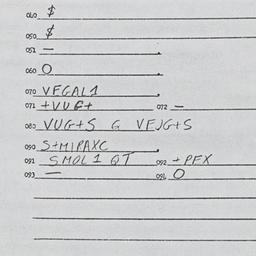 040 $
050 $
051 —
060 O
070 VFGAL1
071 +VUG+ 072 —
080 VUG+S G VEJG+S
090 S+MIPAXC
091 SMOL 1 QT 092 +PFX
093 — 094 O